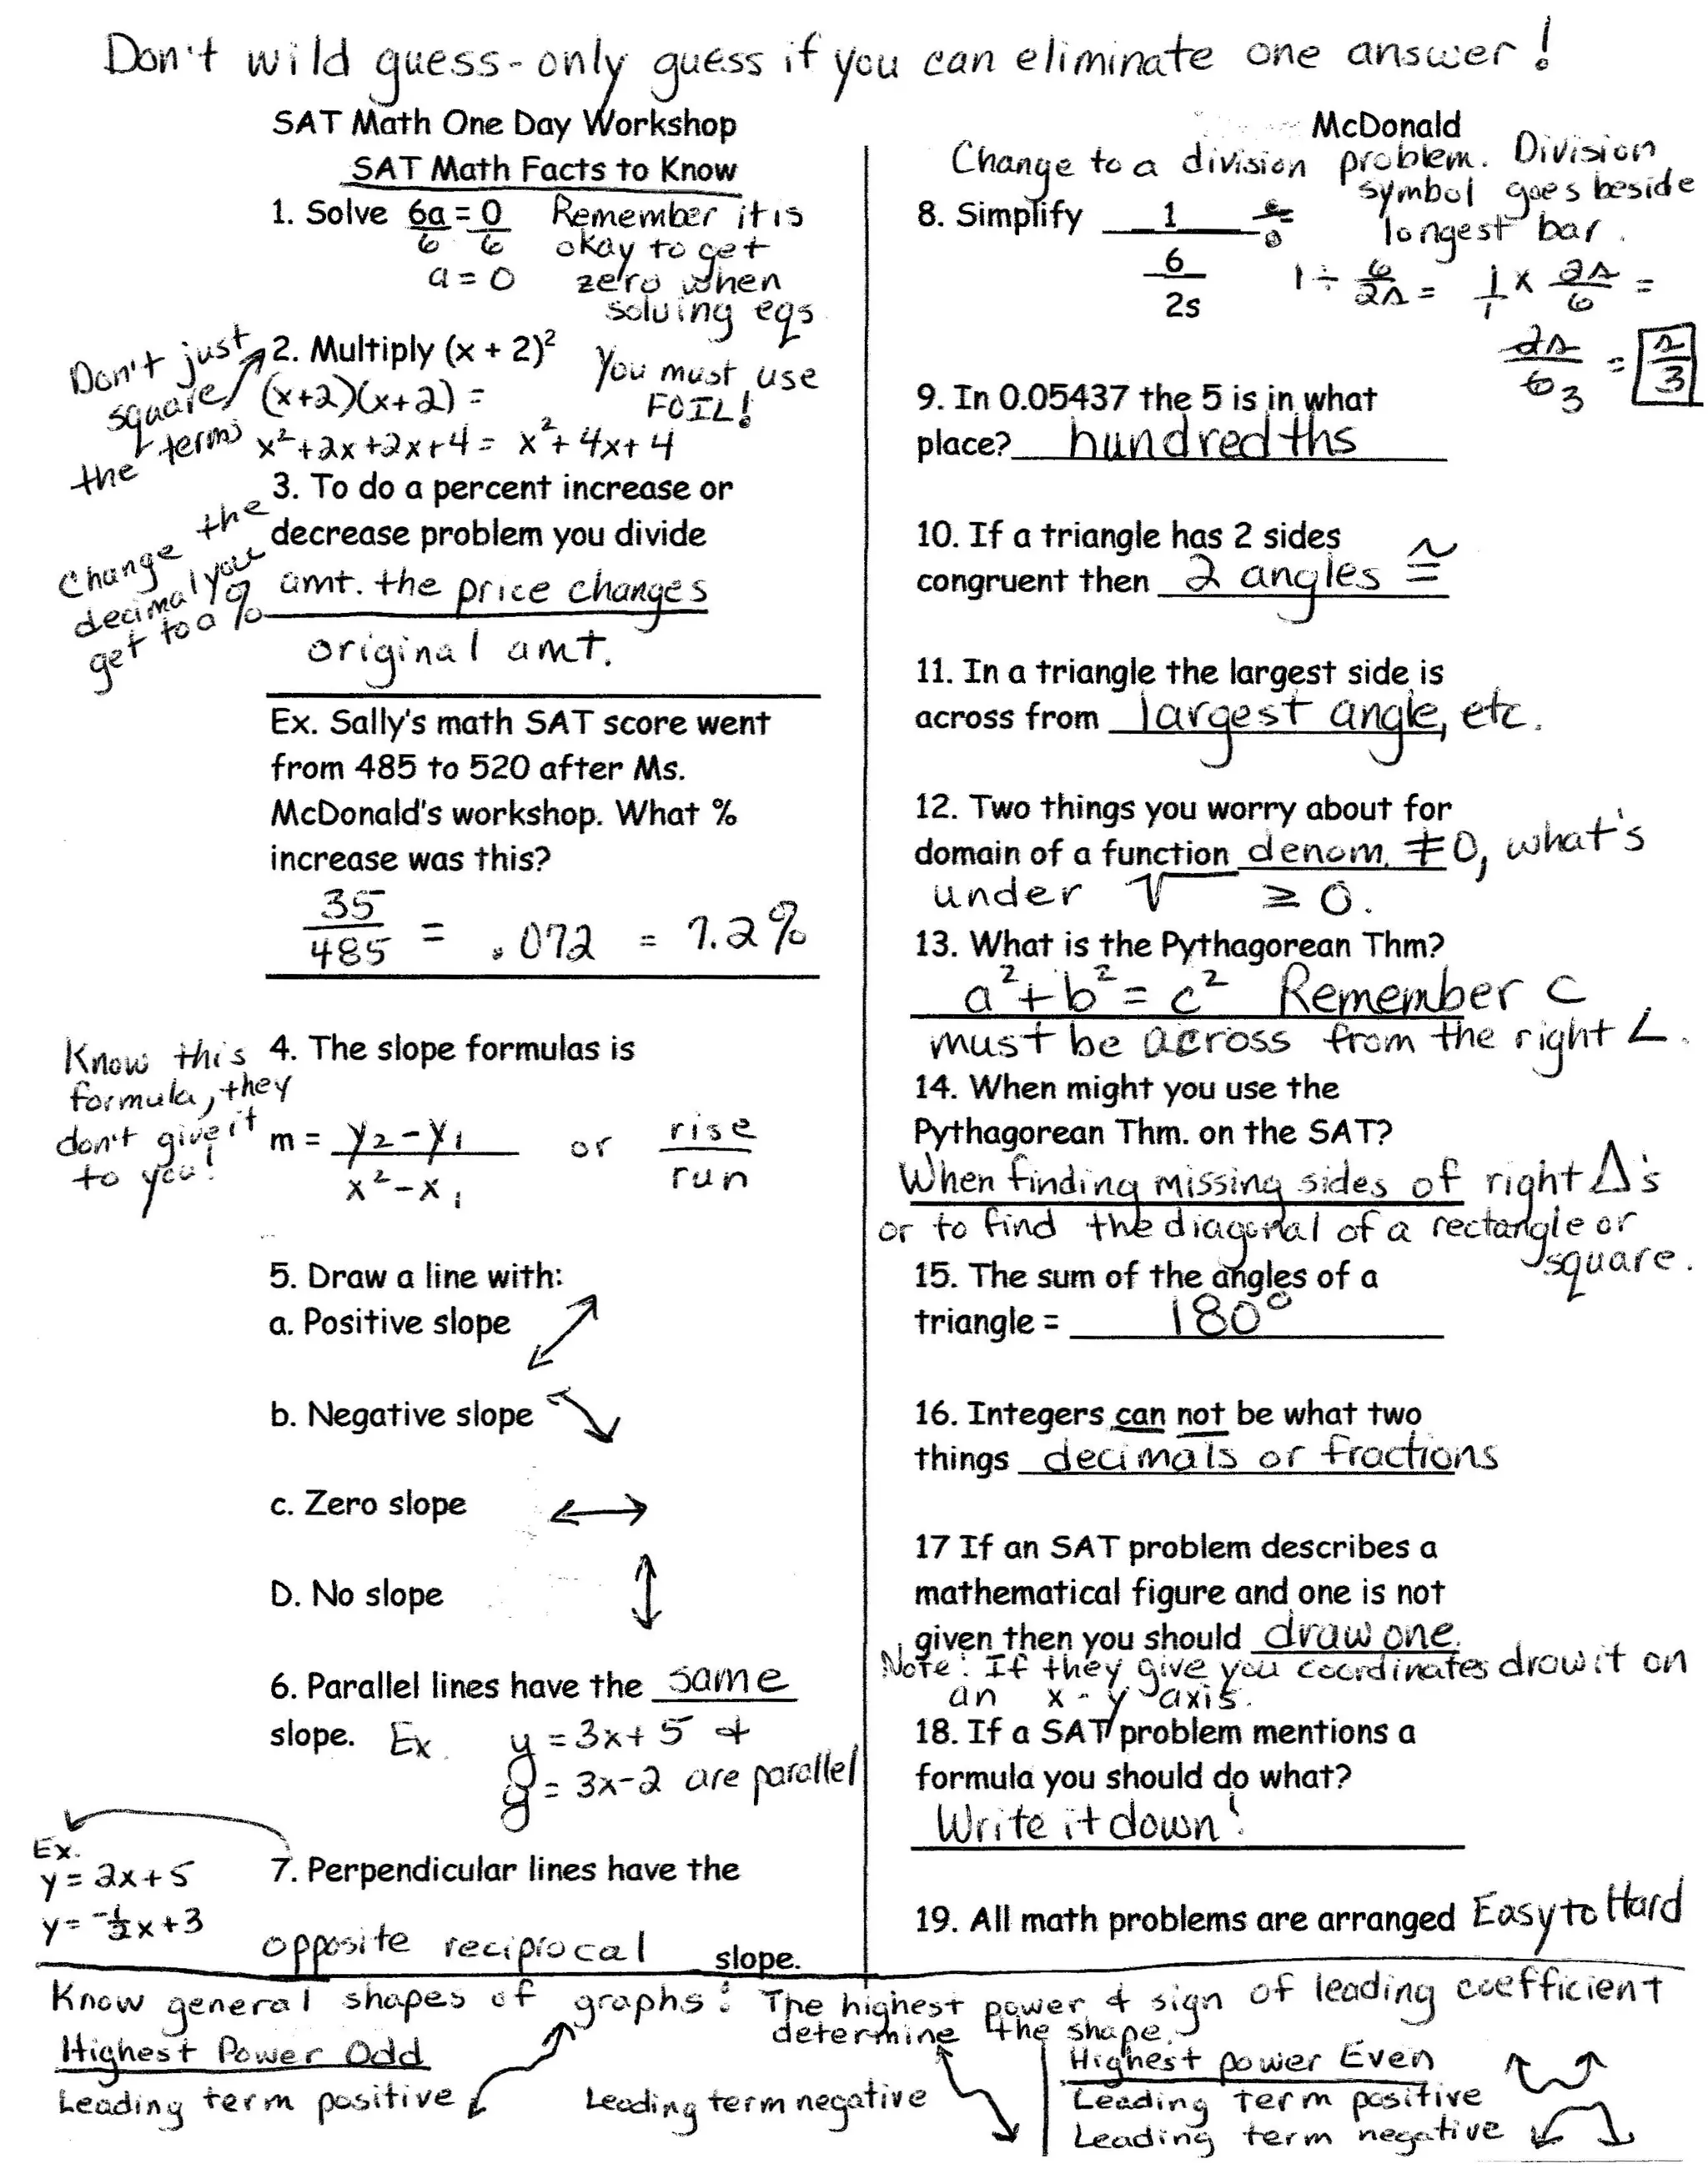 Don't wild guess-only guess if you can eliminate one answer!
SAT Math One Day Workshop
SAT Math Facts to Know
1. Solve 6a = 0 Remember it is
6 6 okay to get
a = 0 zero when
solving eqs
Don't just square the terms
2. Multiply (x + 2)² You must use
(x+2)(x+2) = FOIL!
x²+2x+2x+4 = x²+4x+4
3. To do a percent increase or
decrease problem you divide
Change the
decimal you
get to a %
amt. the price changes
original amt.
Ex. Sally's math SAT score went
from 485 to 520 after Ms.
McDonald's workshop. What %
increase was this?
35/485 = .072 = 7.2%
Know this
formula, they
don't give it
to you!
4. The slope formulas is
m = y₂-y₁ or rise
x²-x₁ run
5. Draw a line with:
a. Positive slope
b. Negative slope
c. Zero slope
D. No slope
6. Parallel lines have the same
slope. Ex. y = 3x+5 +
y = 3x-2 are parallel
Ex.
y = 2x+5
y = -½x+3
7. Perpendicular lines have the
opposite reciprocal slope.
McDonald
Change to a division problem. Division
symbol goes beside
longest bar.
8. Simplify 1 =
6
2s
1 ÷ 6/2s = 1/1 x 2s/6 =
2s/6 3 = s/3
9. In 0.05437 the 5 is in what
place? hundredths
10. If a triangle has 2 sides
congruent then 2 angles ≅
11. In a triangle the largest side is
across from largest angle, etc.
12. Two things you worry about for
domain of a function denom. ≠0, what's
under √ ≥ 0.
13. What is the Pythagorean Thm?
a²+b²=c² Remember c
must be across from the right ∠.
14. When might you use the
Pythagorean Thm. on the SAT?
When finding missing sides of right Δ's
or to find the diagonal of a rectangle or
square.
15. The sum of the angles of a
triangle = 180°
16. Integers can not be what two
things decimals or fractions
17 If an SAT problem describes a
mathematical figure and one is not
given then you should draw one.
Note: If they give you coordinates draw it on
an x-y axis.
18. If a SAT problem mentions a
formula you should do what?
Write it down!
19. All math problems are arranged Easy to Hard
Know general shapes of graphs: The highest power + sign of leading coefficient
determine the shape.
Highest Power Odd
Leading term positive
Leading term negative
Highest power Even
Leading term positive
Leading term negative